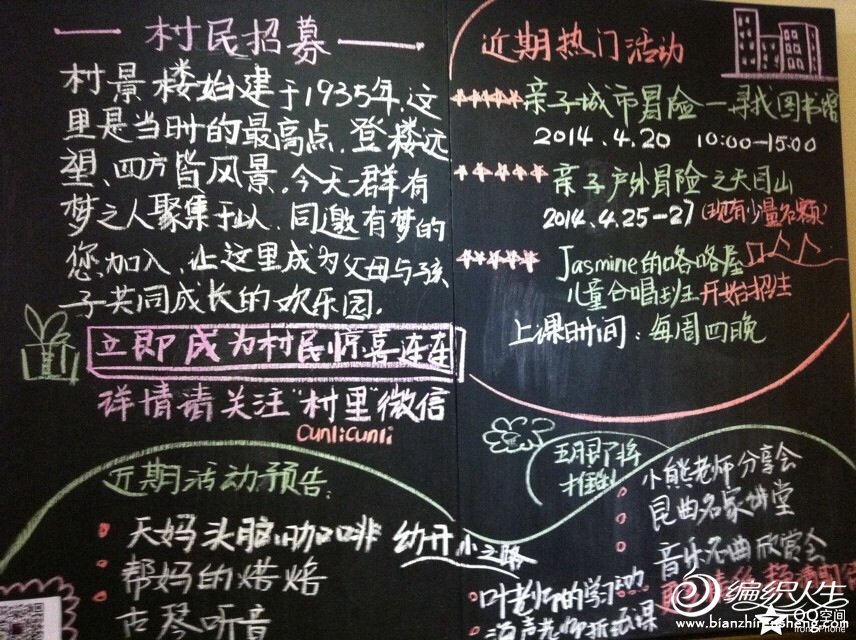 村民招募
村景楼始建于1935年,这
里是当时的最高点,登楼远
望,四方皆风景。今天群有
梦之人聚集于以,同邀有梦的
您加入,让这里成为父母与孩
子共同成长的欢乐园.
立即成为村民惊喜连连
详情请关注"村里"微信
CunliCunli
近期热门活动
亲子城市冒险—寻找图书馆
2014.4.20 10:00—15:00
亲子户外冒险之天目山
2014.4.25—27 (现有少量名额)
Jasmine的咯咯屋
儿童合唱班开始招生
上课时间:每周四晚
近期活动预告:
天妈头脑咖啡 幼升小之路
帮妈的烘焙
古琴听音
叶老师的学习动
五月即将
推出
小熊老师分享会
昆曲名家讲堂
音乐名曲欣赏会
编织人生
www.bianzhirensheng.com
QQ空间
from iPhone